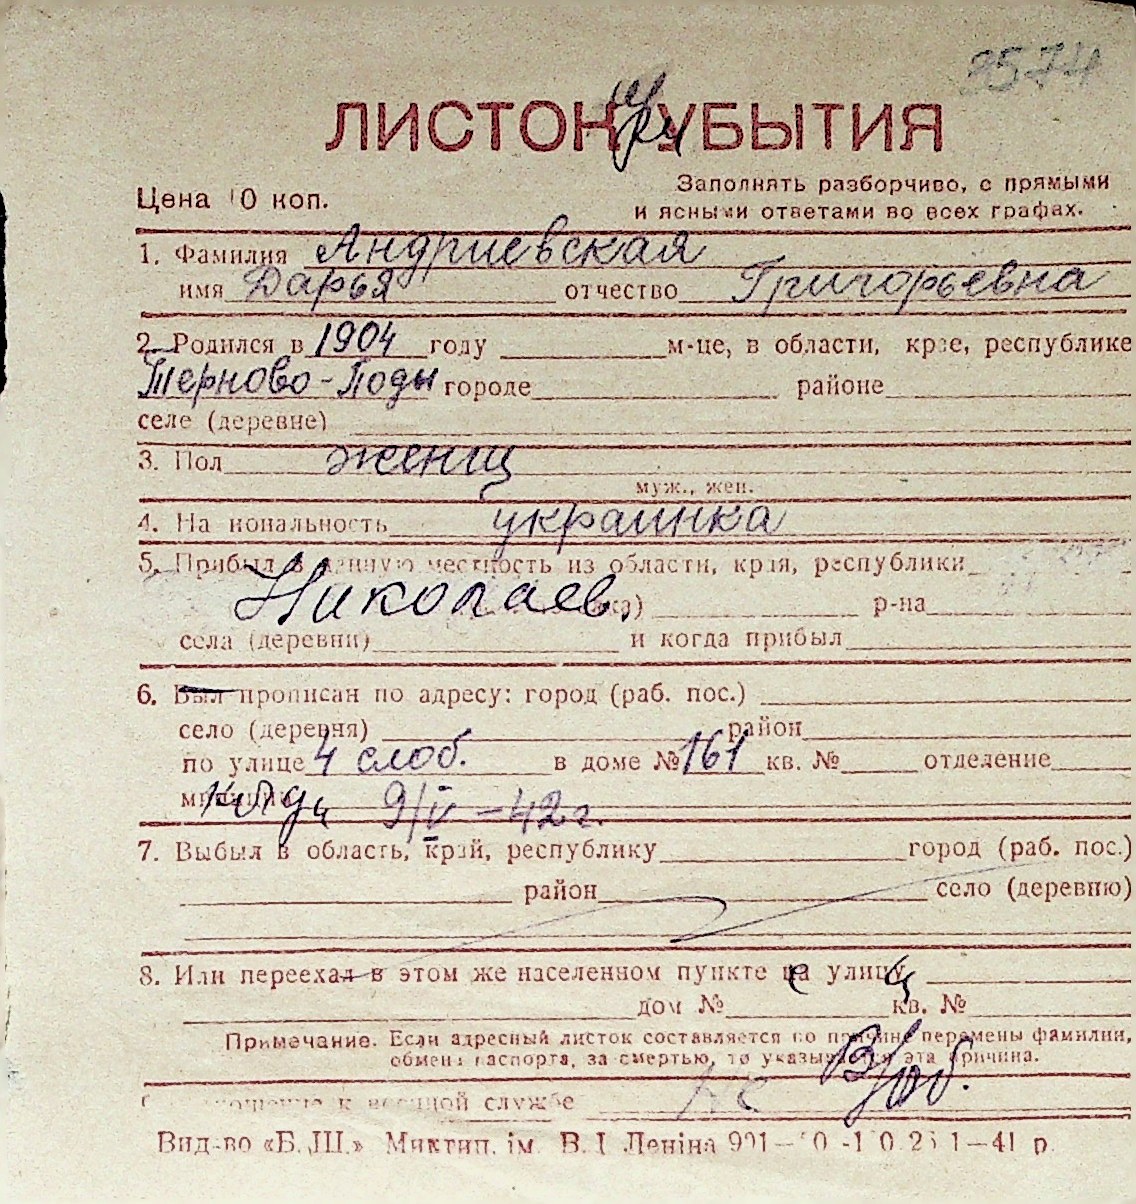 9574
ЛИСТОК при УБЫТИЯ
Цена 10 коп. Заполнять разборчиво, с прямыми
и ясными ответами во всех графах.
1. Фамилия Андриевская
имя Дарья отчество Григорьевна
2. Родился в 1904 году м-це, в области, крае, республике
Терново-Поды городе районе
селе (деревне)
3. Пол женщ
муж., жен.
4. На иональность украинка
5. Прибыл в данную местность из области, края, республики
Николаев, ка) р-на
села (деревни) и когда прибыл
6. Был прописан по адресу: город (раб. пос.)
село (деревня) район
по улице 4 слоб. в доме № 161 кв. № отделение
милиции когда 9/V-42 г.
7. Выбыл в область, край, республику город (раб. пос.)
район село (деревню)
8. Или переехал в этом же населенном пункте на улицу
дом № кв. №
Примечание. Если адресный листок составляется по причине перемены фамилии,
обмена паспорта, за смертью, то указывается эта причина.
к военной службе
Вид-во «Б. Ш.» Миктип. ім. В. І Леніна 41 р.